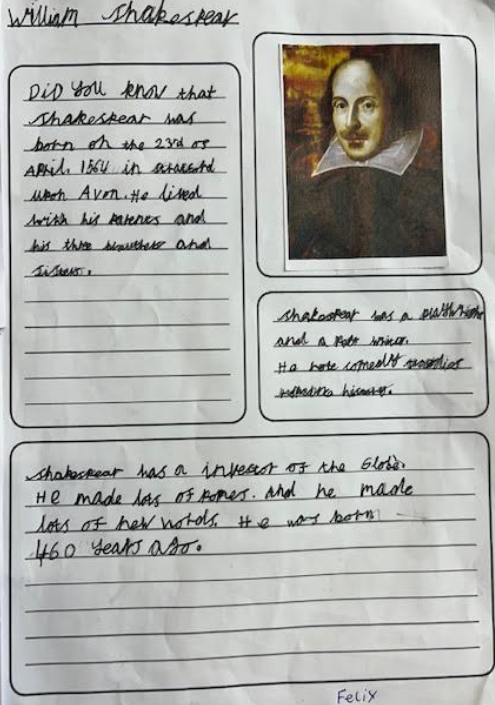 William Shakespear
DiD you know that
Shakespear was
born on the 23rd of
April. 1564 in stratford
upon Avon. He lived
with his parents and
his three and
sisters.
Shakespear was a playwright
and a writer.
He wrote comedy
Shakespear was a investor of the Globe.
HE made lots of pomes. And he made
lots of new words. He was born
460 years ago.
Felix